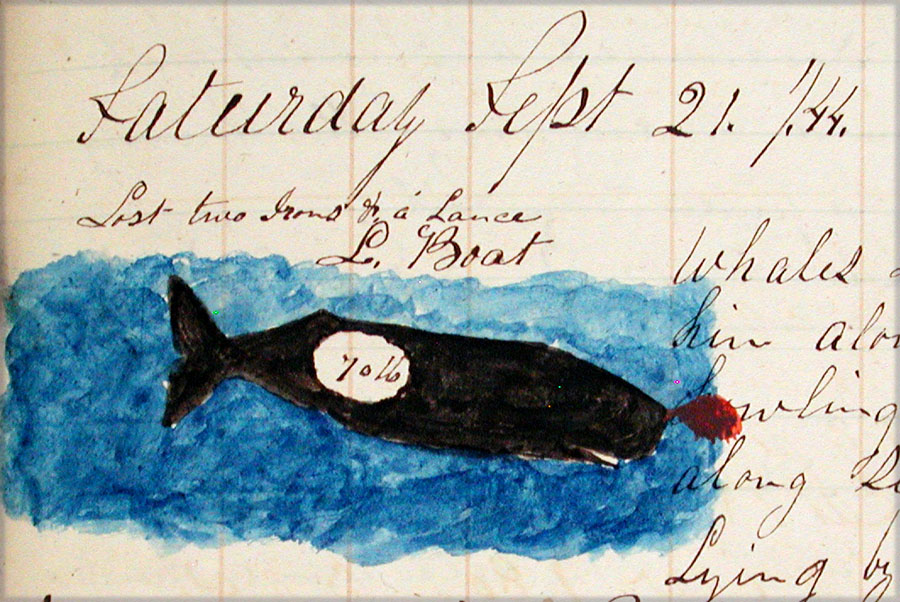 Saturday Sept 21. /44.
Lost two Irons & a Lance
L. Boat
Whales
him along
70 lb
along
Lying by